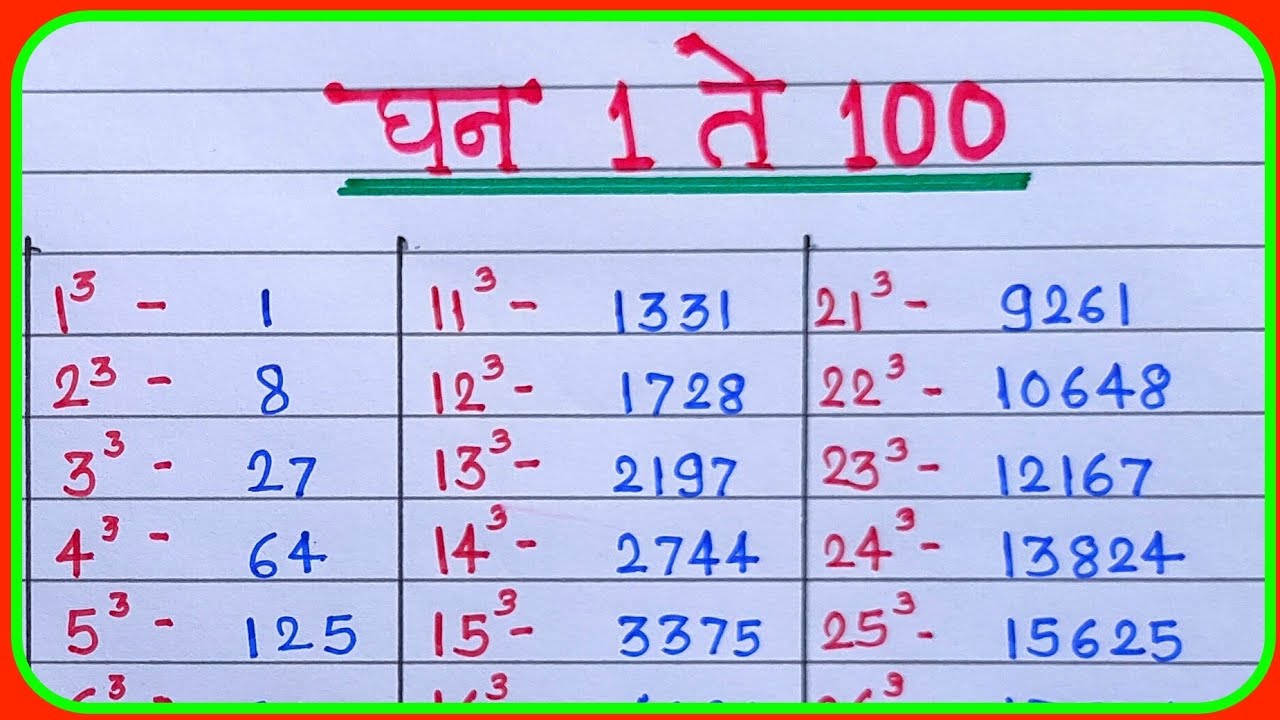 घन 1 ते 100
1³ - 1 11³ - 1331 21³ - 9261
2³ - 8 12³ - 1728 22³ - 10648
3³ - 27 13³ - 2197 23³ - 12167
4³ - 64 14³ - 2744 24³ - 13824
5³ - 125 15³ - 3375 25³ - 15625